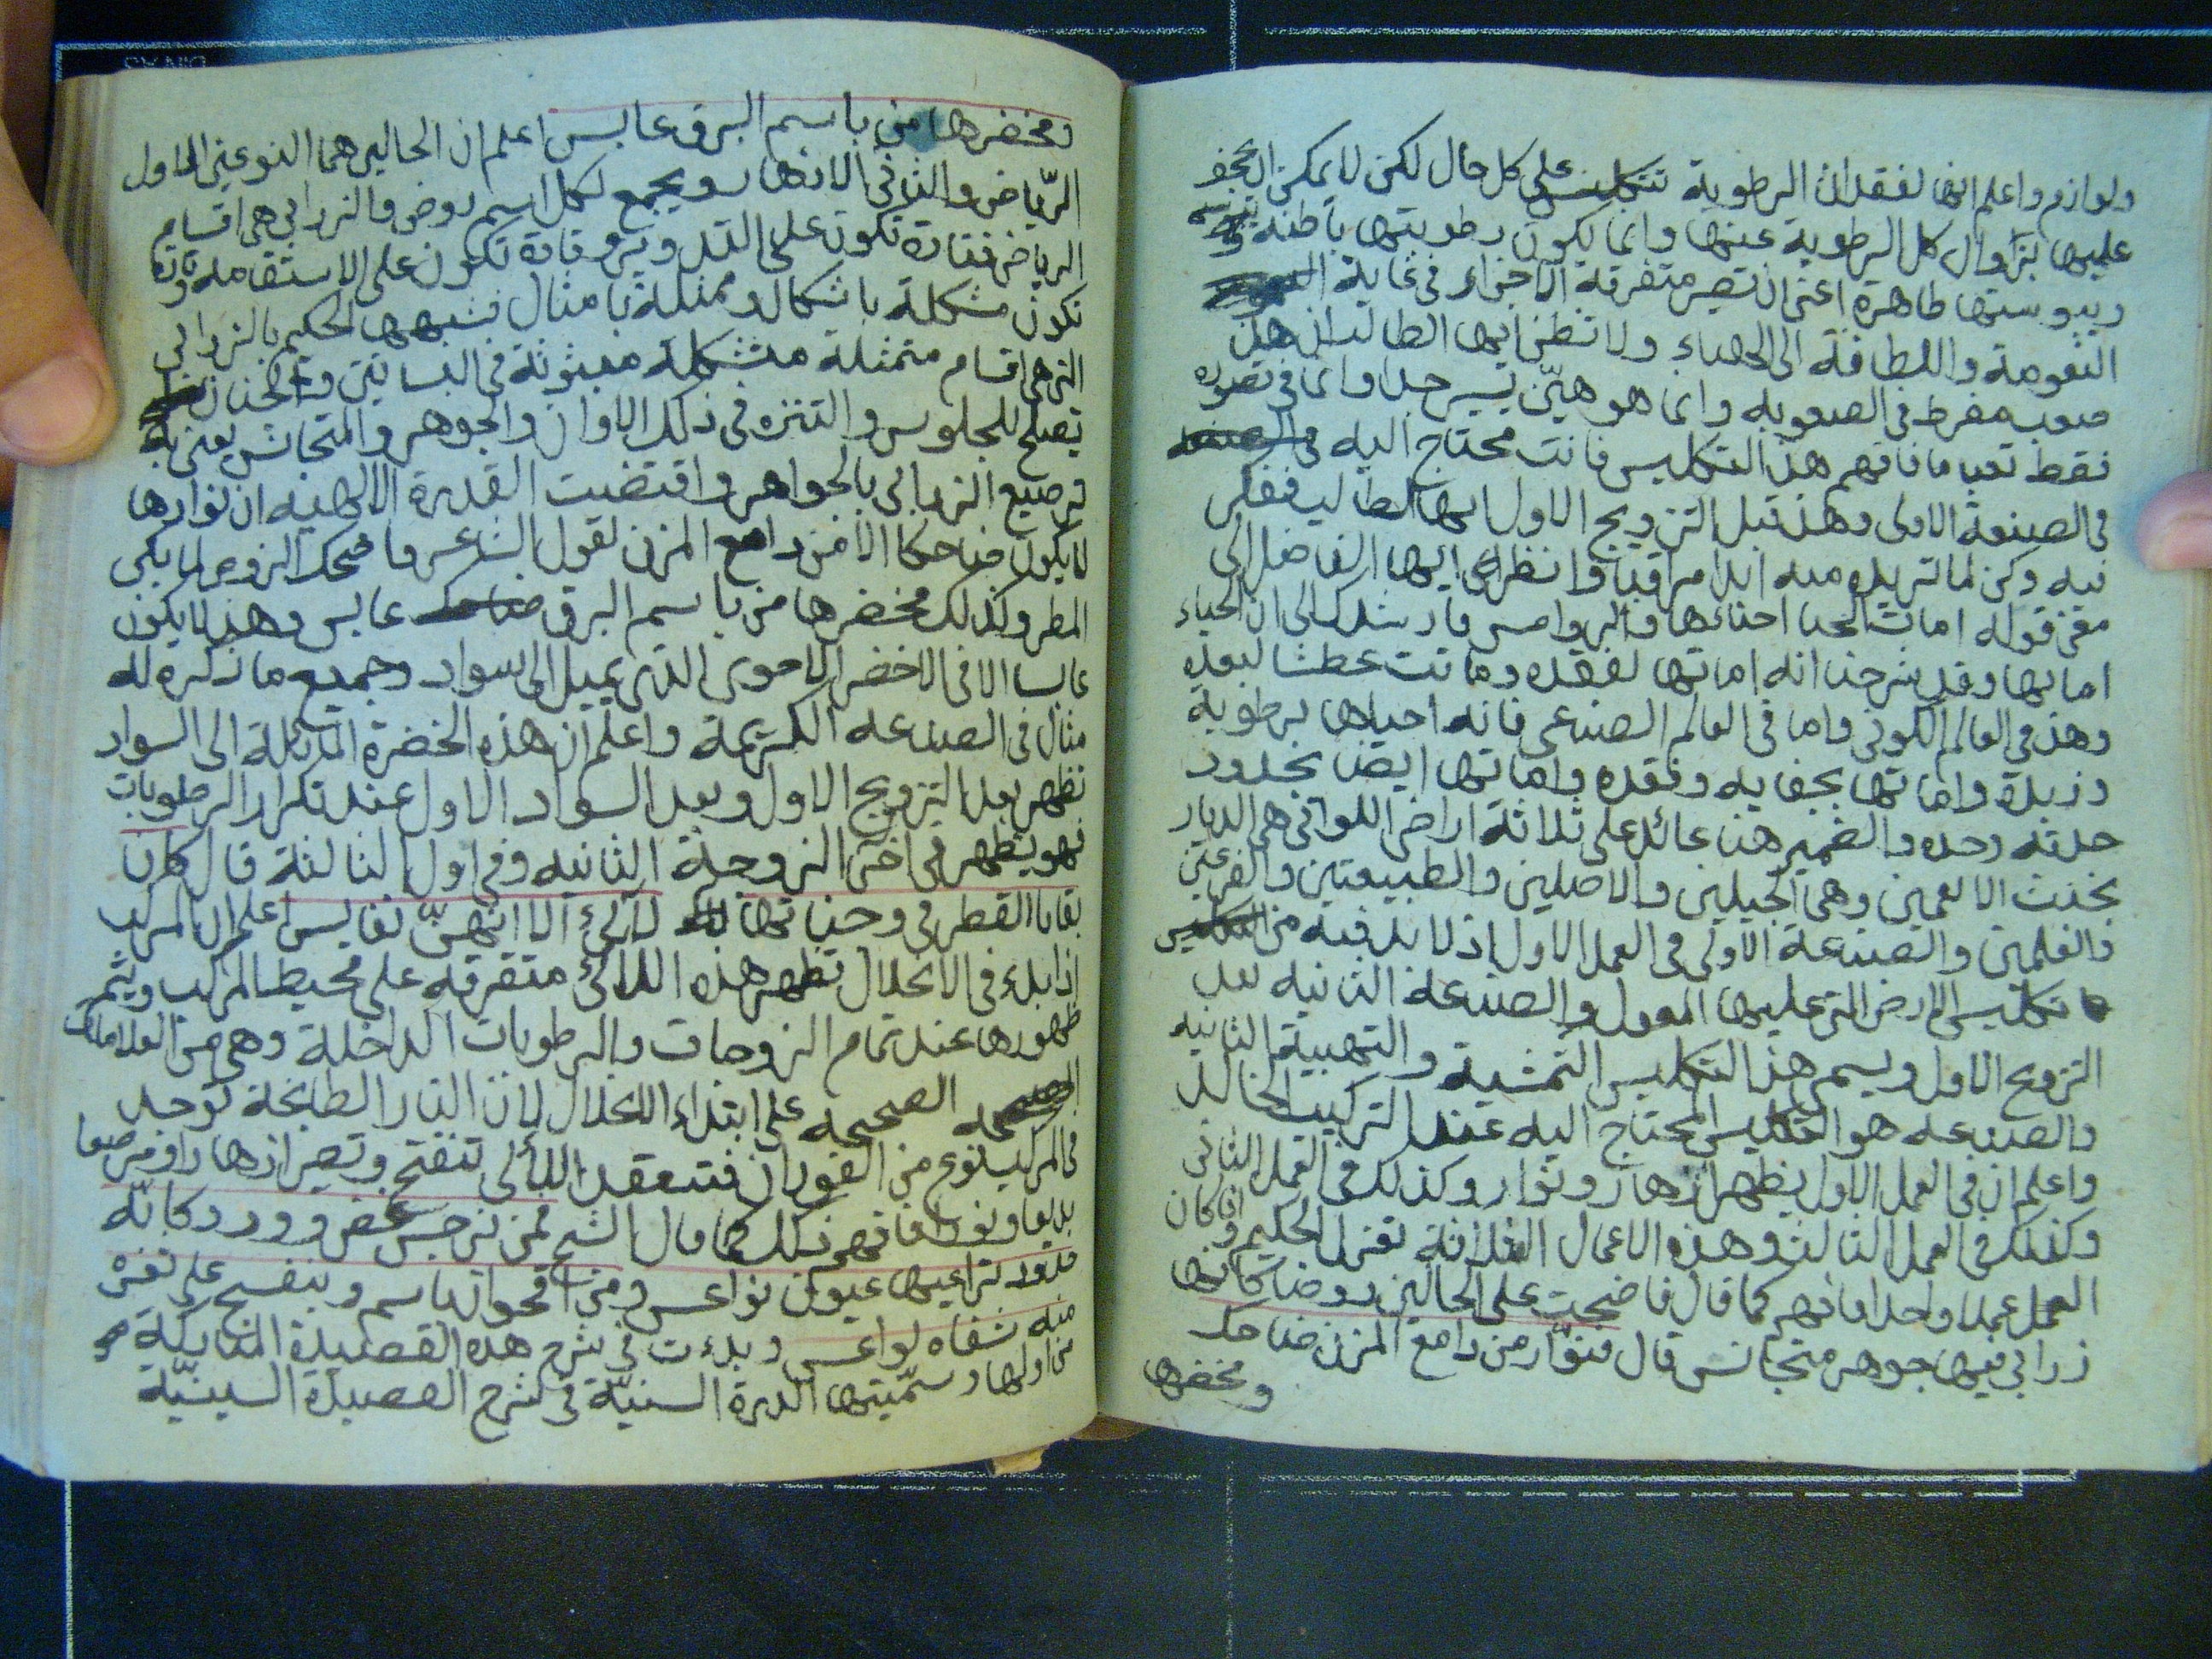 ولوازم واعلم انها لفقدان الرطوبة تتكلس على كل حال لكن لا يمكن ان تجف
عليها بزوال كل الرطوبة عنها وانما يكون رطوبتها باطنه
ويبوستها ظاهرة اعنى ان تصير متفرقة الاجزاء فى غاية
النعومة واللطافة الى الهباء ولا تظن ايها الطالب ان هذا
صعب مفرط فى الصعوبه وانما هو هيّن يسير جدا وانما فى تصوره
فقط تعب ما فافهم هذا التكليس فانت محتاج اليه
فى الصنعة الاولى وهذا قبل التزويج الاول ايها الطالب ففكر
فيه وكن لما تريده منه ابدا مراقبا وانظر ايها الفاضل الى
معنى قوله امات الحيا احناءها والروامس فارشدك الى ان الحياء
اماتها وقد شرحنا انه اماتها لفقده وماتت عطشا لبعده
وهذا فى العالم الكونى واما فى العالم الصناعى فانه احياها برطوبة
وزبدة واماتها بجفايه وفقده واماتها ايضا بحدود
حدته وحده والضمير هنا عائد على ثلاثة اراضى اللواتى هى الديار
بخنث الانعمين وهى الجبلين والاصلين والطبيعتين والفرعين
والعلمين والصناعة الاولى فى العمل الاول اذ لا بد فيه من
تكليس الارض التى عليها المعول والصناعة الثانيه بعد
التزويج الاول ويسمى هذا التكليس التمشية والتهبية الثانيه
والصناعه هو التكليس المحتاج اليه عند التركيب الخالد
واعلم ان فى العمل الاول يظهر ازهار ونوار وكذلك فى العمل الثانى
وكذلك فى العمل الثالث وهذه الاعمال الثلاثة تغزل الحكيم وان كان
العمل عملا واحدا فافهم كما قال فاضحت على الحالين روضا كانها
زرابى فيها جوهر متجانس قال فنوّار من دامع المزن ضاحك
ومخضرها
ومخضرها من باسم البرق عابس اعلم ان الحالين هما النوعين الاول
الرّياض والثانى الازهار ويجمع لكل اسم روض والزرابى هى اقسام
الرياض فتارة تكون على التدوير وتارة تكون على الاستقامه وتارة
تكون مشكلة باشكال وممثلة بامثال فشبهها الحكيم بالزرابى
التى هى اقسام متمثلة متشكلة مبثوثة فى البساتين والجنان
تصلح للجلوس والتنزه فى ذلك الاوان والجوهر والمتجانس يعنى به
ترصيع الزرابى بالجواهر واقتضت القدرة الالهيه ان نوارها
لا يكون ضاحكا الا من دامع المزن لقول الشاعر ما ضحك الزوهر الا بكى
المطر وكذلك مخضرها من باسم البرق عابس وهذا لا يكون
عابسا الا فى الاخضر الاحوى الذى يميل الى سواد وجميع ما ذكره له
مثال فى الصناعه الكريمة واعلم ان هذه الخضرة المائلة الى السواد
تظهر بعد التزويج الاول وبعد السواد الاول عند تكرار الرطوبات
فهو يظهر فى اخر الزوجة الثانيه وفى اول الثالثة قال كان
بقايا القطر فى وجناتها لآلئ الا انهنّ نفايس اعلم ان المركب
اذا بدء فى الانحلال تظهر هذه اللآلئ متفرقه على محيط المركب ويتم
ظهورها عند تمام الزوجات والرطوبات الداخلة وهى من العلامات
الصحيحه على ابتداء الانحلال لان النار الطابخة توجد
فى المركب بنوع من الفوران فتنعقد اللآلى تنفتح وتصير ازهارا ومرصعا
بديعا ونورا فافهم ذلك كما قال الشيخ فمن نرجس غض وورد كانه
خدود تراعيها عيون نواعس ومن اقحوان باسم وبنفسج على ثغره
منه شفاه لواعس وبدءت فى شرح هذه القصيدة المباركة
من اولها وسمّيتها الدرة السنيّة فى شرح القصيدة السينيّة